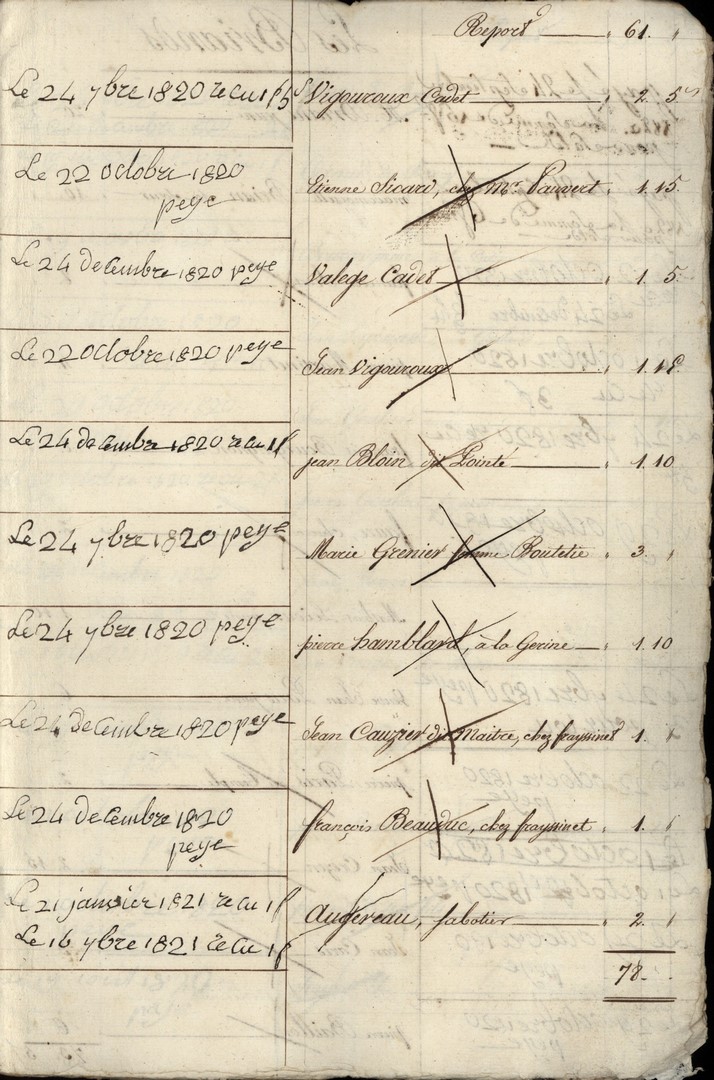 Report " 61. "
Le 24 7bre 1820 recu 1f 5s Vigouroux Cadet " 2. 5
Le 22 octobre 1820 peye
Etienne Sicard, chez Mr. Pauvert " 1. 15
Le 24 decembre 1820 peye
Valege Cadet " 1. 5
Le 22 Octobre 1820 peye
Jean Vigouroux " 1. 15
Le 24 decembre 1820 recu 1f
jean Bloin dit Pointé " 1. 10
Le 24 7bre 1820 peye
Marie Grenier femme " 3. "
Le 24 7bre 1820 peye
pierre hamblard, à la Gerine " 1. 10
Le 24 Decembre 1820 peye
Jean Cauzier dit Maitre, chez frayssinet " 1. "
Le 24 Decembre 1820
peye
françois Beauduc, chez frayssinet " 1. "
Le 21 janvier 1821 recu 1f
Augereau, sabotier " 2. "
Le 16 7bre 1821 recu 1f
78. "